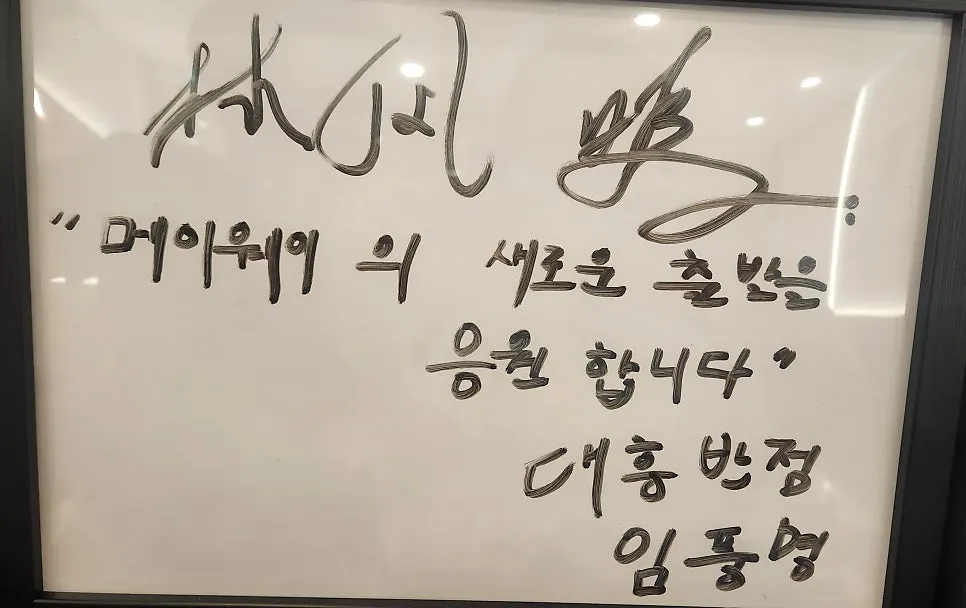 "메이웨이 의 새로운 출발을
응원 합니다"
대흥 반점
임풍명